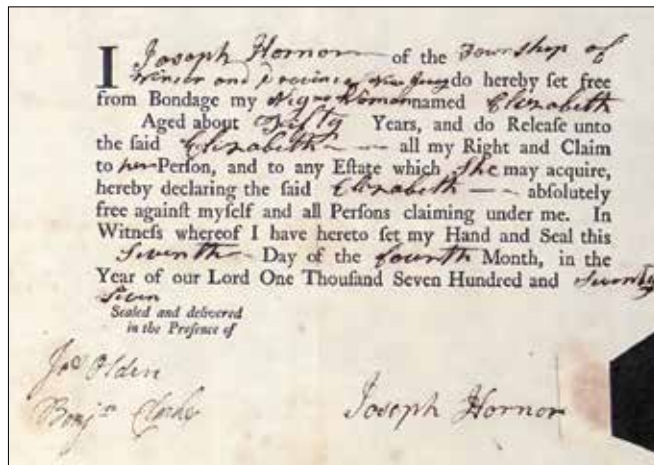 I Joseph Hornor of the Township of
Winsor and Province New Jersey do hereby ſet free
from Bondage my Negro Woman named Elizabeth
Aged about Years, and do Releaſe unto
the ſaid Elizabeth — — all my Right and Claim
to her Perſon, and to any Eſtate which She may acquire,
hereby declaring the ſaid Elizabeth — — abſolutely
free againſt myſelf and all Perſons claiming under me. In
Witneſs whereof I have hereto ſet my Hand and Seal this
Seventh Day of the fourth Month, in the
Year of our Lord One Thouſand Seven Hundred and Seventy
Seven
Sealed and delivered
in the Preſence of
Jos Olden
Benjn Clarke
Joseph Hornor